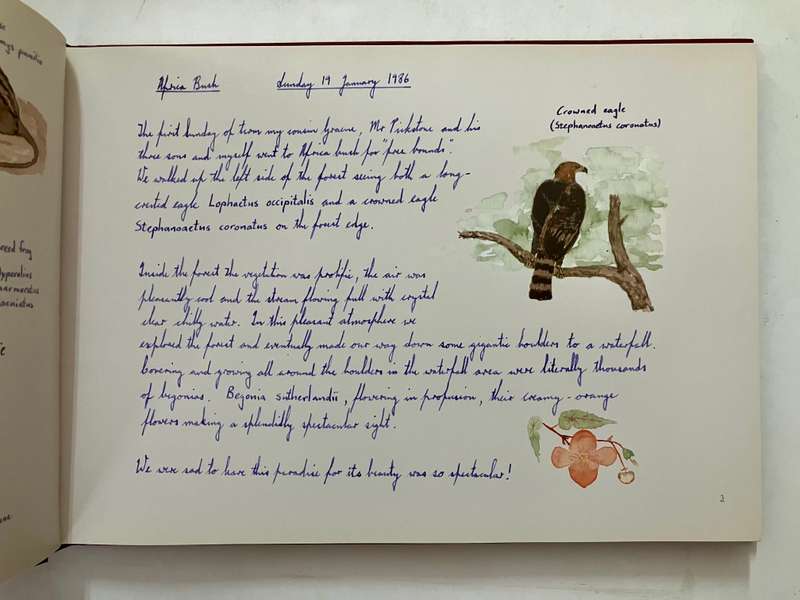 Africa Bush Sunday 19 January 1986
Crowned eagle
(Stephanoaetus coronatus)
The first Sunday of term my cousin Graeme, Mr Pickstone and his
three sons and myself went to Africa bush for "free bounds".
We walked up the left side of the forest seeing both a long-
crested eagle Lophaetus occipitalis and a crowned eagle
Stephanoaetus coronatus on the forest edge.
Inside the forest the vegetation was prolific, the air was
pleasantly cool and the stream flowing full with crystal
clear chilly water. In this pleasant atmosphere we
explored the forest and eventually made our way down some gigantic boulders to a waterfall.
Covering and growing all around the boulders in the waterfall area were literally thousands
of begonias. Begonia sutherlandii, flowering in profusion, their creamy-orange
flowers making a splendidly spectacular sight.
We were sad to leave this paradise for its beauty was so spectacular!
2
reed frog
Hyperolius
marmoratus
taeniatus